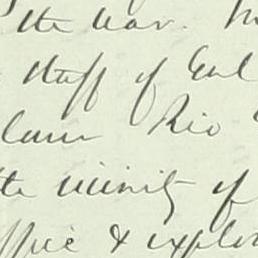 the war.
staff of Genl
Rio
the vicinity of
& explo